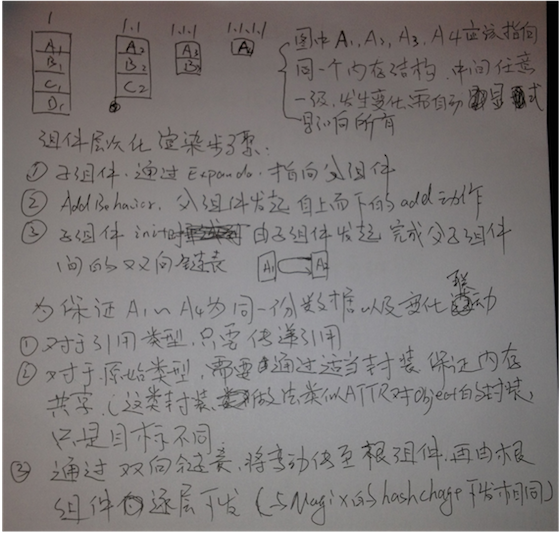 1 1.1 1.1.1 1.1.1.1
A1 A2 A3 A4
B1 B2 B3
C1 C2
D1
图中A1,A2,A3,A4应该指向
同一个内存结构,中间任意
一级,发生变化,需自动显式
影响所有
组件层次化渲染步骤:
① 子组件.通过Expando.指向父组件
② AddBehavior.父组件发起自上而下的add动作
③ 子组件init时 由子组件发起完成父子组件
间的双向链表 A1 A2
为保证A1~A4为同一份数据以及变化联动
① 对于引用类型,只要传递引用
② 对于原始类型,需要通过适当封装保证内存
共享.(这类封装,做法类似ATTR对Object的封装,
只是目标不同
③ 通过双向链表,将变动传至根组件,再由根
组件逐层下发(与Magix的hashchage下发相同)